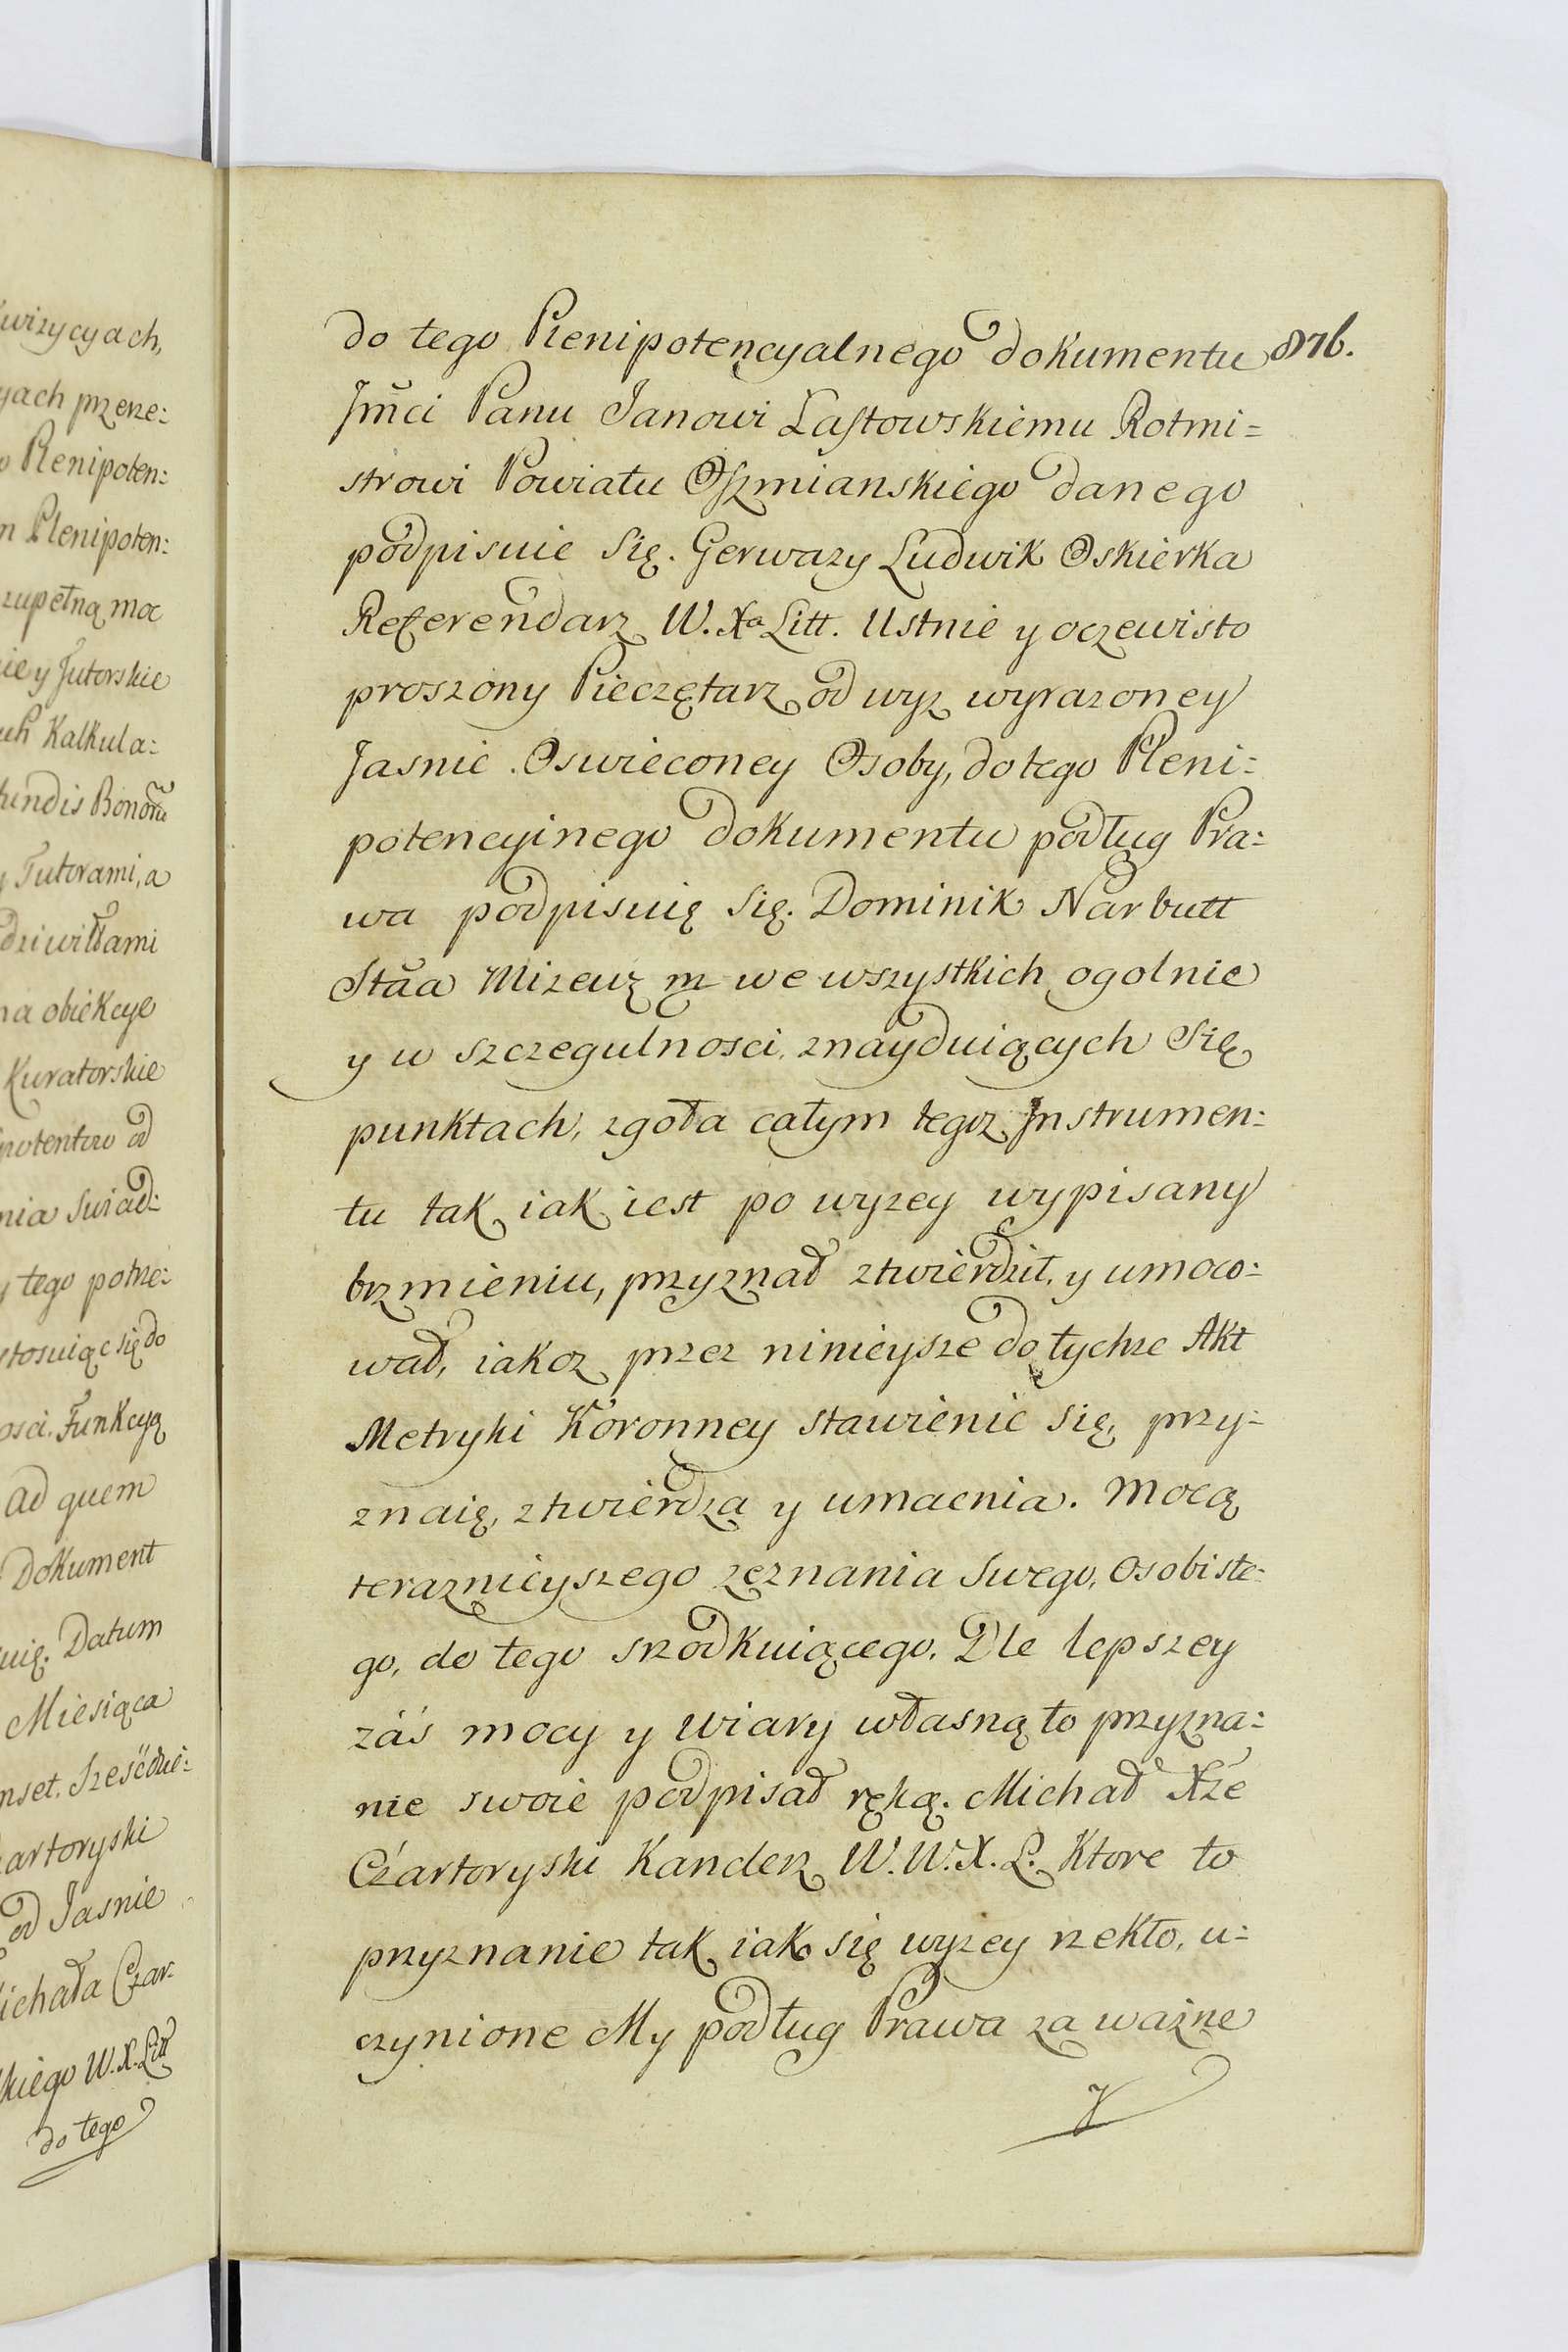 wizycyach,
yach przeze:
o Plenipoten:
m Plenipoten:
zupełną moc
ie y Tutorskie
uch Kalkula:
fundis Bonorũ
y Tutorami, a
dziwiłłami
na obiekcye
Kuratorskie
potentow od
nia Swiad:
y tego potrze:
stosuiąc się do
osci. Funkcyą
ad quem
Dokument
uię. Datum
Miesiąca
artoryski
od Jasnie
Michała Czar:
skiego W. X. Litt
do tego
876.
do tego Plenipotencyalnego dokumentu
Jmći Panu Janowi Łastowskiemu Rotmi=
strowi Powiatu Oszmianskiego danego
podpisuie Się. Gerwazy Ludwik Oskierka
Referendarz W. Xa Litt. Ustnie y oczewisto
proszony Pieczętarz od wyz wyrazoney
Jasnie Oswieconey Osoby, do tego Pleni:
potencyinego dokumentu podług Pra:
wa podpisuię Się. Dominik Narbutt
Stãa Mizeuz m we wszystkich ogolnie
y w szczegulnosci, znayduiących Się
punktach, zgoła całym tegoz Instrumen:
tu tak iak iest po wyzey wypisany
brzmieniu, przyznał ztwierdził, y umoco:
wał, iakoz przez ninieysze do tychze Akt
Metryki Koronney stawienie się, przy:
znaię, ztwierdza y umacnia. Mocą
teraznieyszego zeznania Swego, Osobiste:
go, do tego srzodkuiącego. Dle lepszey
záś mocy y Wiary własną to przyzna:
nie swoie podpisał ręką. Michał Xże
Czartoryski Kanclerz W. W. X. L. Ktore to
przyznanie tak iako się wyzey rzekło, u:
czynione My podług Prawa za wazne